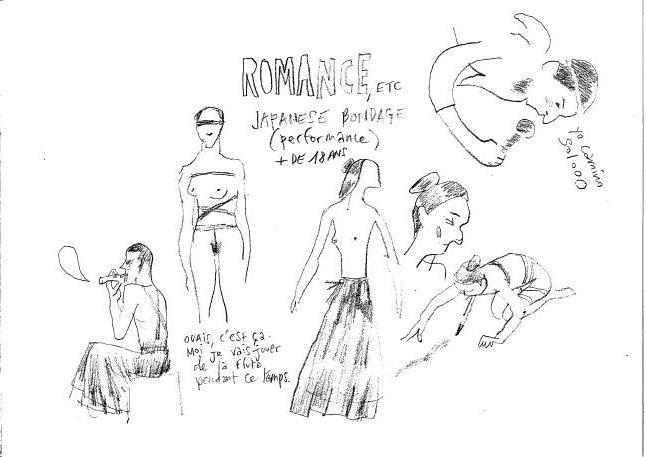 ROMANCE, ETC
JAPANESE BONDAGE
(performance)
+ DE 18 ANS
OUAIS, C'EST ÇA.
MOI, je vais jouer
de la flute
pendant ce temps.
Yo